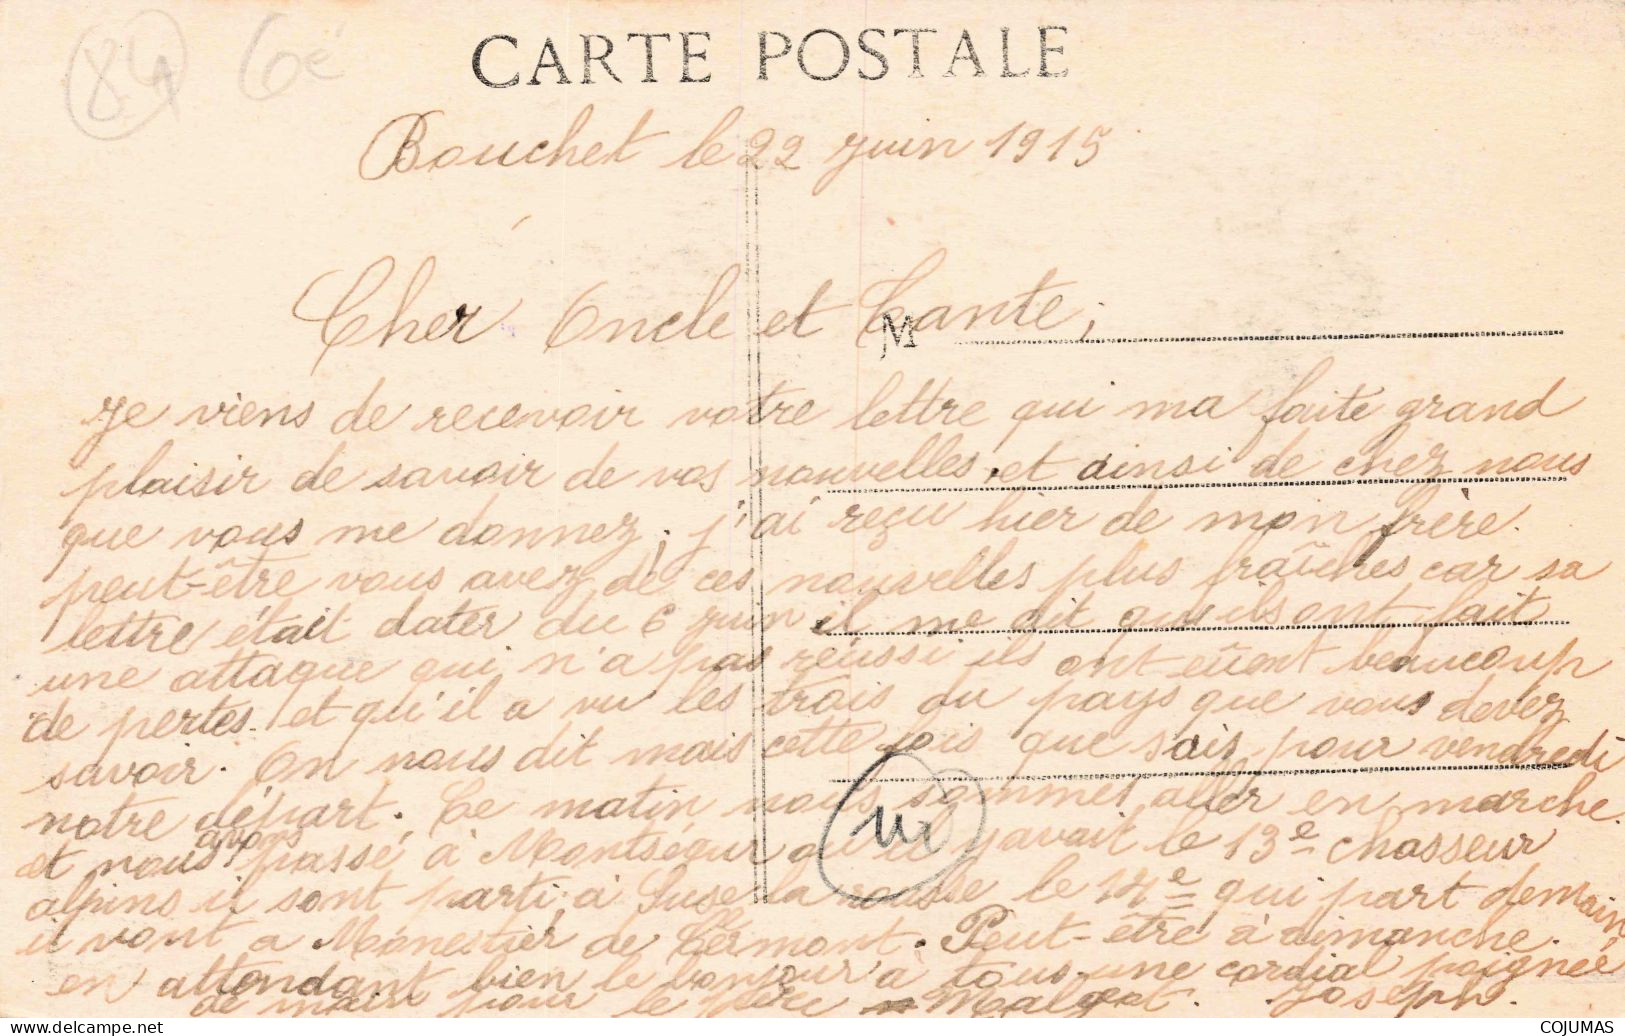 84 6é
CARTE POSTALE
Bouchet le 22 juin 1915
Cher Oncle et Tante,
M
Je viens de recevoir votre lettre qui ma faite grand
plaisir de savoir de vos nouvelles, et ainsi de chez nous
que vous me donnez, j'ai reçu hier de mon frère.
peut-être vous avez de ces nouvelles plus fraîches car sa
lettre était dater du 6 juin il me dit qu'ils ont fait
une attaque qui n'a pas réussi ils ont eûent beaucoup
de pertes. et qu'il a vu les trois du pays que vous devez
savoir. On nous dit mais cette fois que sais pour vendredi
notre départ. Ce matin nous sommes aller en marche.
et nous avons passé à Montségur où il y avait le 13e chasseur
alpins il sont parti à Suse la rousse le 14e qui part demain
il vont a Monestier de Clermont. Peut-être à dimanche.
en attendant bien le bonjour à tous une cordial poignée
de main pour le père Joseph.
COJUMAS